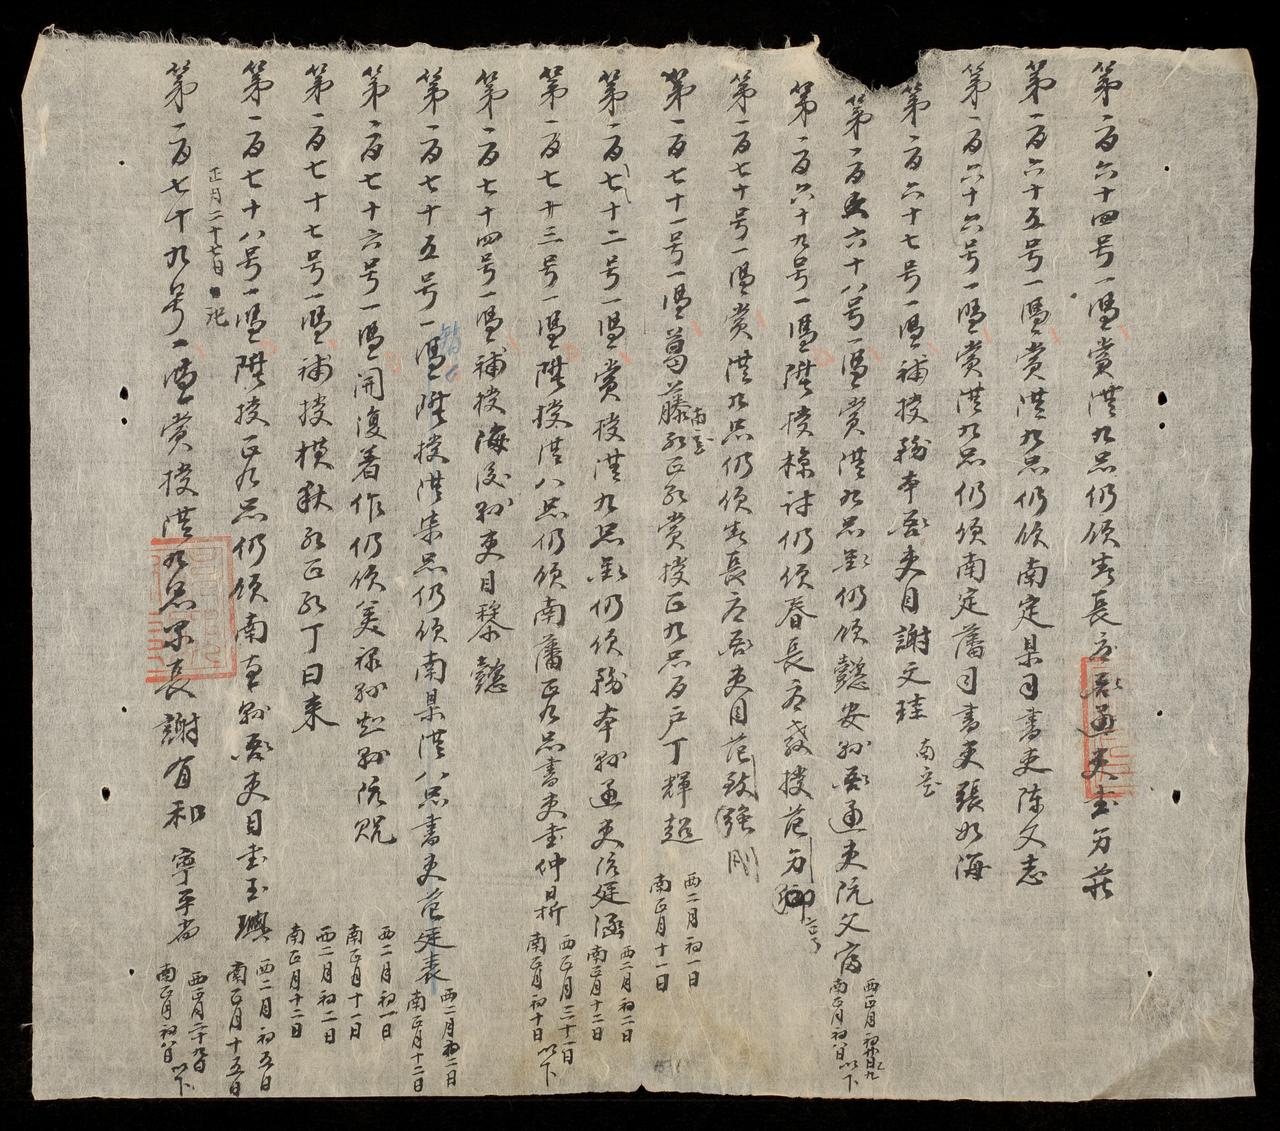 第一百六十四号一憑賞授九品仍領春長應吏
第一百六十五号一憑賞授九品仍領南定県司書吏陳文志
第一百六十六号一憑賞授九品仍領南定藩司書吏張如海
第一百六十七号一憑補授務本吏目謝文珪
第一百六十八号一憑賞授九品仍領懿安縣通吏阮文富
西正月初九日
南正月初八日以下
第一百六十九号一憑陞授檢討仍領春長府教授范
第一百七十号一憑賞授九品仍領春長府吏目范致強
第一百七十一号一憑葛藤社正社賞授正九品百戸丁輝超
西二月初一日
南正月十一日
第一百七十二号一憑賞授九品仍領務本縣通吏阮廷涵
西二月初二日
南正月十二日
第一百七十三号一憑陞授八品仍領南藩正九品書吏仲
西正月三十一日
南正月初十日以下
第一百七十四号一憑補授海後縣吏目黎懿
第一百七十五号一憑陞授柒品仍領南県八品書吏范廷表
西二月初二日
南正月十二日
第一百七十六号一憑開復著作仍領美禄縣知縣阮貺
西二月初一日
南正月十一日
第一百七十七号一憑補授横秋社正社丁曰来
西二月初二日
南正月十二日
第一百七十八号一憑陞授正九品仍領南真縣吏目玉璵
西二月初五日
南正月十五日
正月二十七日記
第一百七十九号一憑賞授九品里長謝有和 寧平省
西正月二十九日
南正月初八日以下